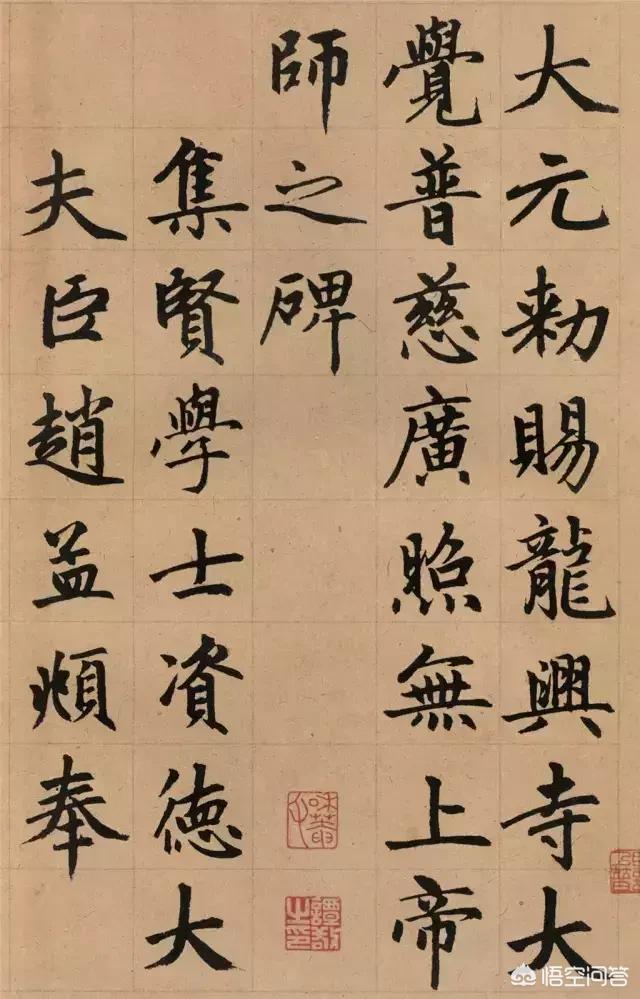 大元勑賜龍興寺大
覺普慈廣照無上帝
師之碑
集賢學士資德大
夫臣趙孟頫奉
悟空问答